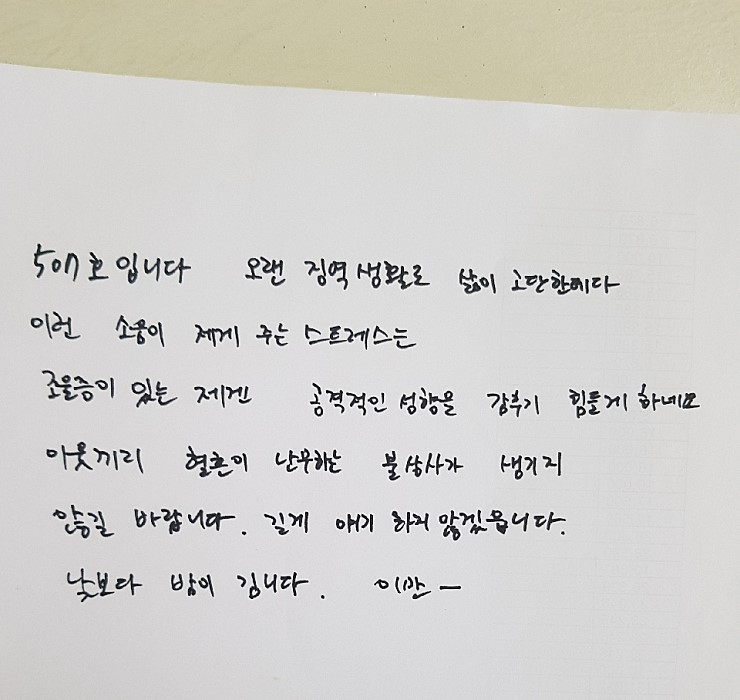 507호입니다 오랜 징역생활로 삶이 고단한데다
이런 소음이 제게 주는 스트레스는
조울증이 있는 제겐 공격적인 성향을 감추기 힘들게 하네요
이웃끼리 혈흔이 난무하는 불상사가 생기지
않길 바랍니다. 길게 얘기 하지 않겠읍니다.
낮보다 밤이 깁니다. 이만 —